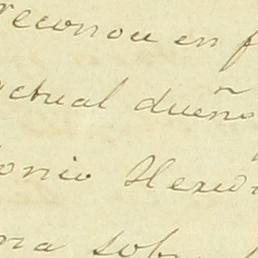 reconoce en f
actual dueño
onio Here
na sobre